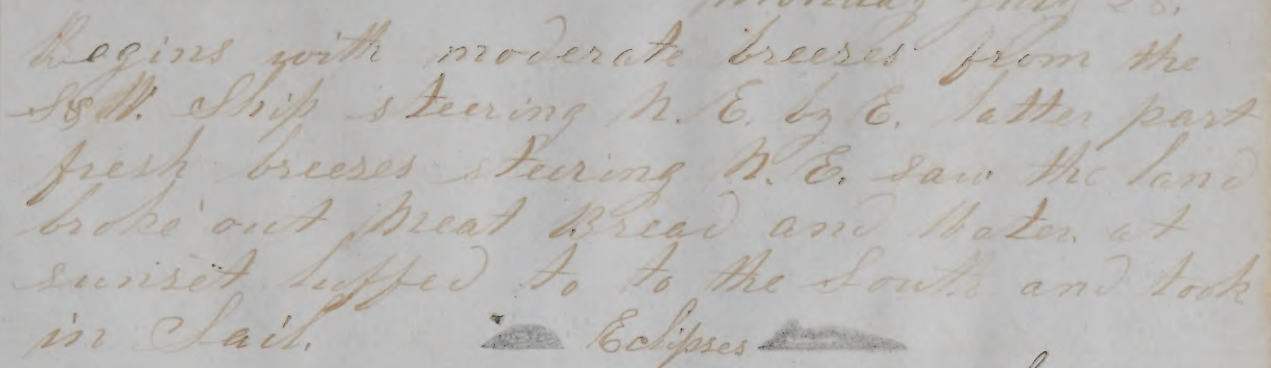 Monday July 28.
Begins with moderate breezes from the
S&W. Ship steering N.E. by E. latter part
fresh breezes steering N.E. saw the land
broke out Meat Bread and Water at
sunset luffed to to the South and took
in Sail. Eclipses